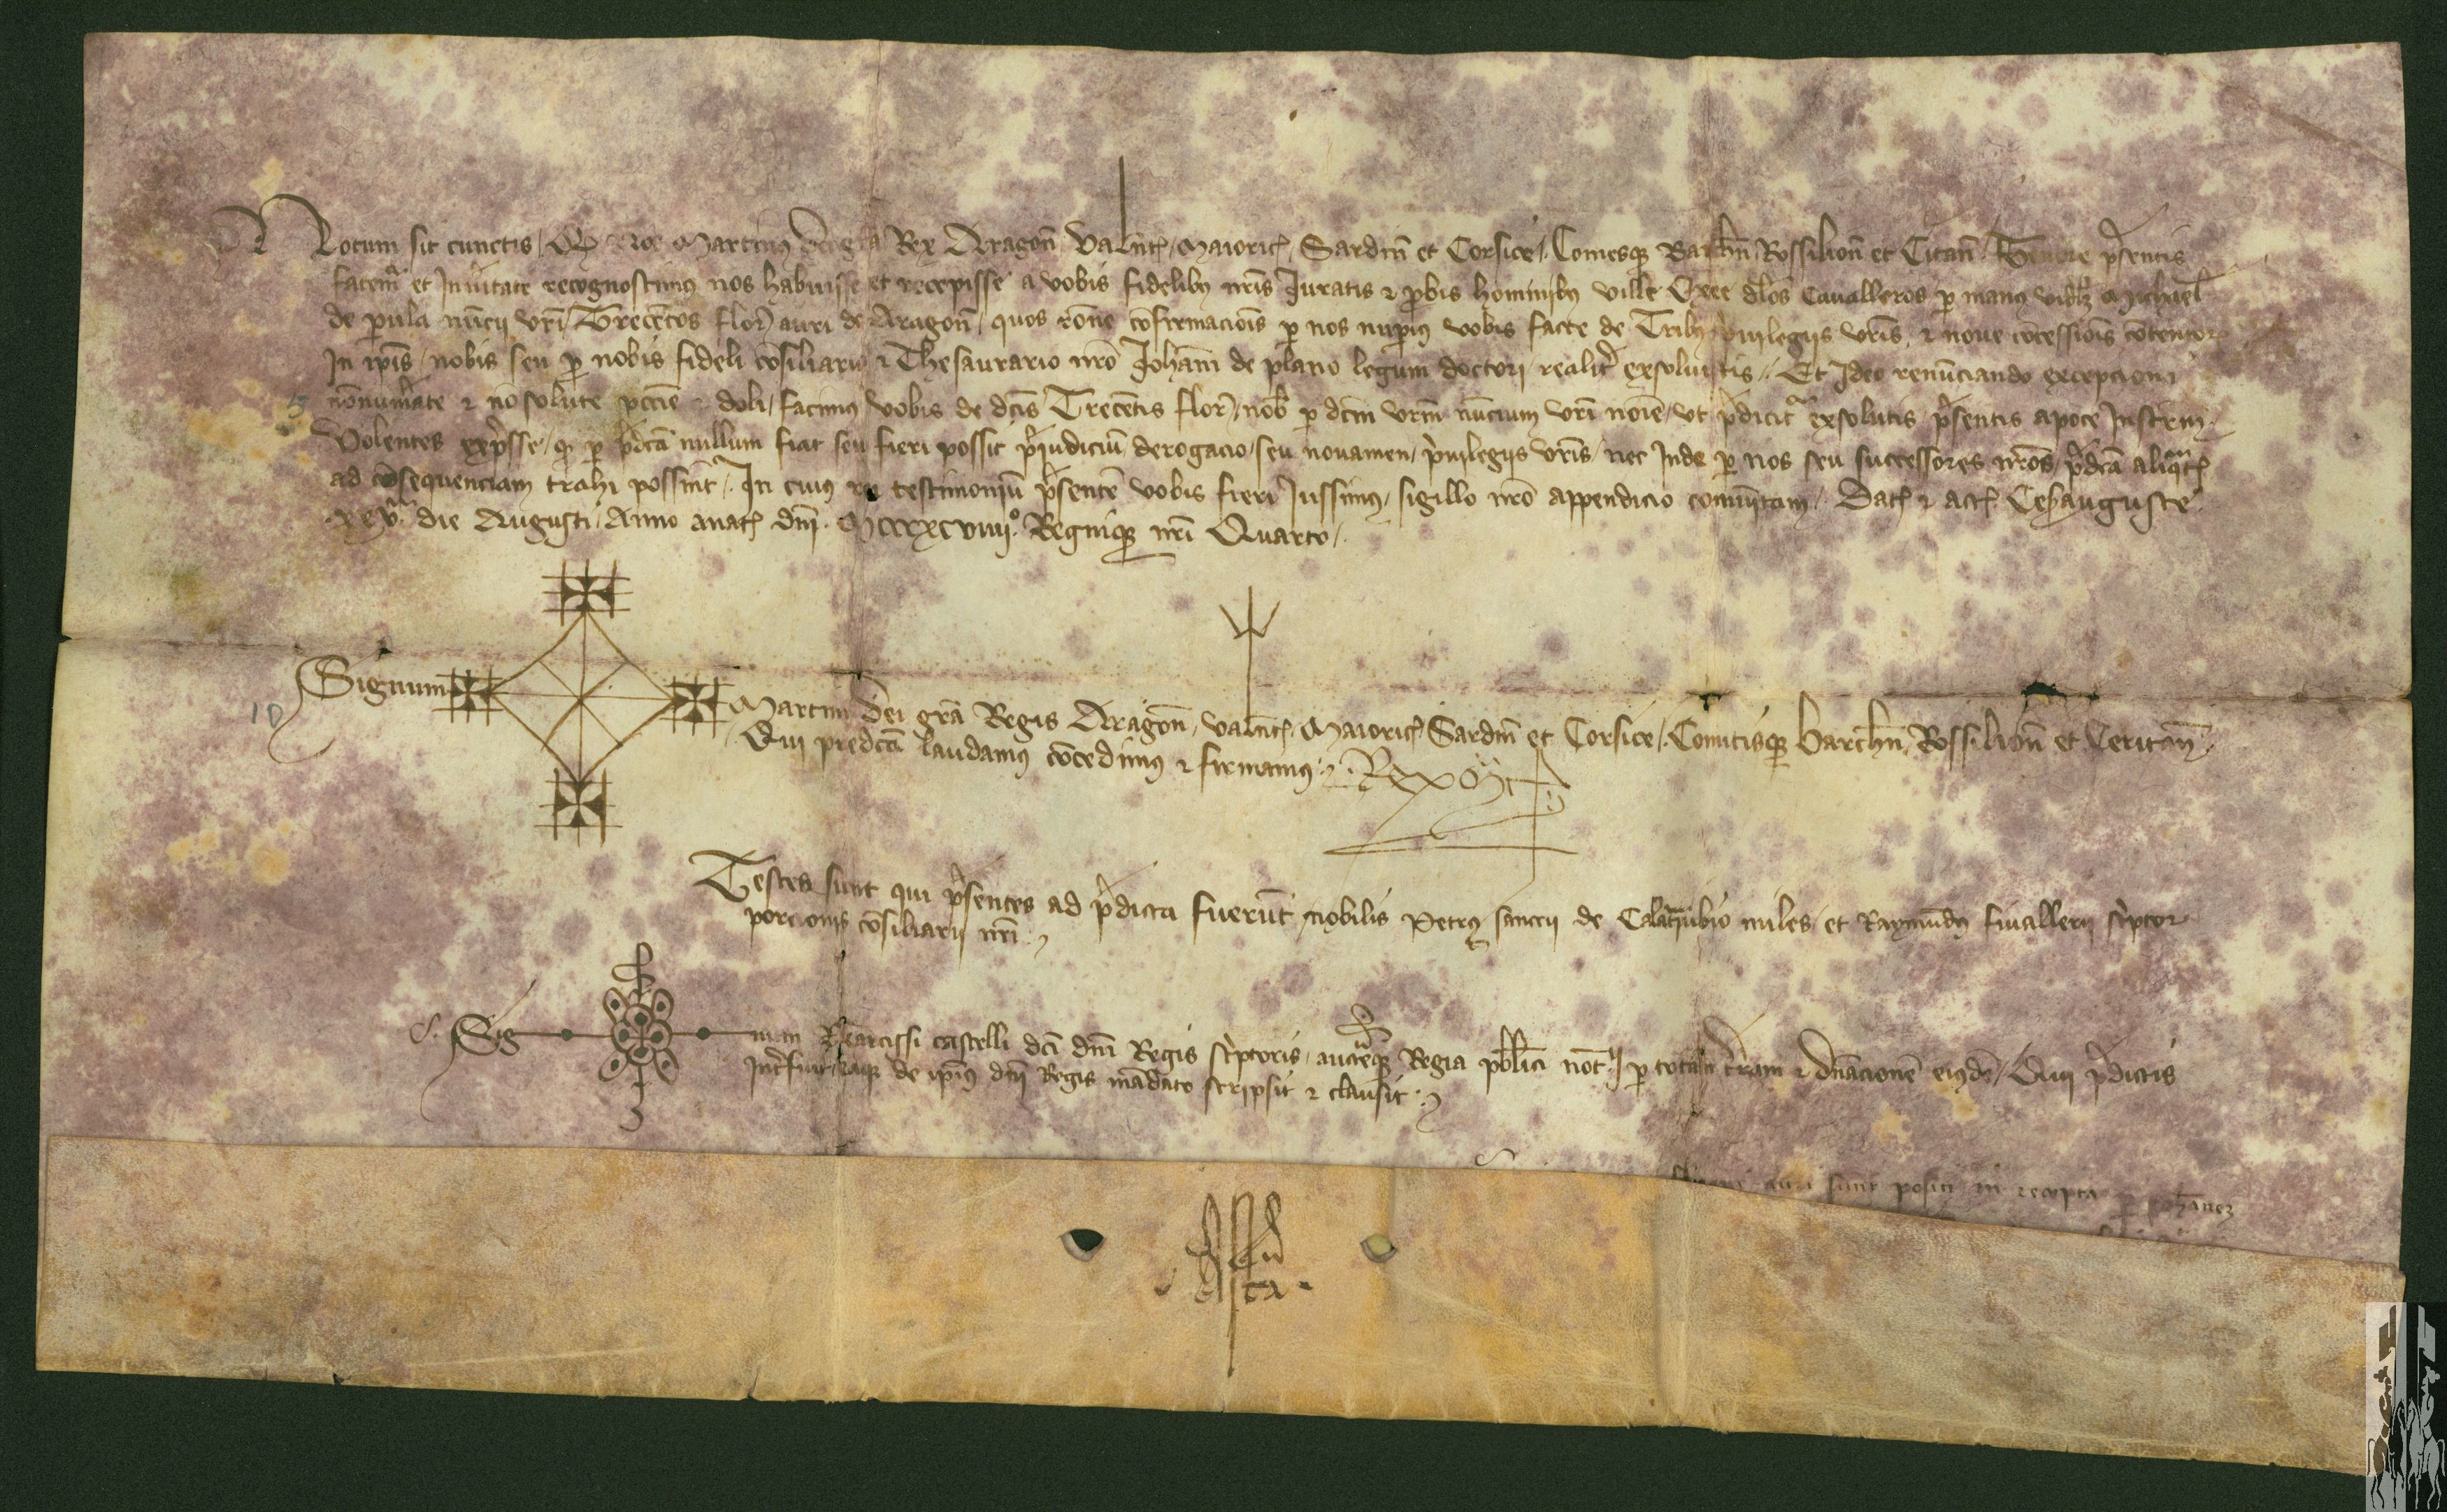 Notum sit cunctis / Qd Nos Martinus dei gra Rex Aragon Valent Maioric Sardin et Corsice / Comesq Barchn Rossilion et Citan / Tenore psentis
fatem et Inuitate recognoscimus nos habuisse et recepisse a vobis fidelibus nris Juratis et pbis hominibus ville Exee dlos Cavalleros p manus Michael
de pula nuncii vri / Trecentos flor auri de Aragon / quos rone confirmacois p nos nupius vobis facte de Tribus priuilegiis vris / et noue concessiois contentor
In ipis / nobis seu p nobis fideli consiliario et Thesaurario nro Johani de plano legum doctori realit exsoluistis // Et Ideo renunciando excepcioni
nonumerate et no solute pccie et doli / facimus vobis de dcis Trecentis flor / nob p dcm vrm nuncium vri noie / vt pdicitr exsolutis psentis apoce Instrm /
Volentes expsse / q p pdca nullum fiat seu fieri possit piudiciu / derogacio / seu nouamen / priuilegiis vris / nec Inde p nos seu successores nros / pdca aliqt
ad consequenciam trahi possint / In cuius re testimoniu psente vobis fieri Jussimus / sigillo nro appendicio comunitam / Dat et act Cesaraguste
xxva die Augusti / Anno a nat dni Mcccxcviiiio Regniq nri Quarto /
Signum Martini dei gra Regis Aragon / Valent / Maioric Sardin et Corsice / Comitisq Barchn / Rossilion et Ceritan /
Qui predca laudamus concedimus et firmamus / Rex Mart
Testes sunt qui psentes ad pdicta fuerut / nobilis Petrus sancii de Calataiubio miles / et Raymundus fiuallerii scriptor
porcionis consiliarii nri /
Sig num Narcissi castelli dci dni Regis scriptoris / aucteq Regia publici not p totam tram et dnacione eiusde / Qui pdictis
Intfuit / eaq de ipius dni Regis madato scripsit et clausit /
auri sunt positi in recepta p Johanez
Asta
5
10